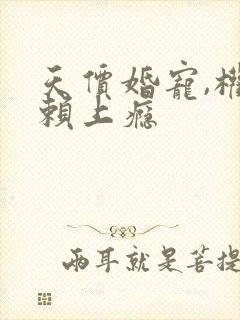 天價婚寵,權
賴上癮
兩耳就是菩提